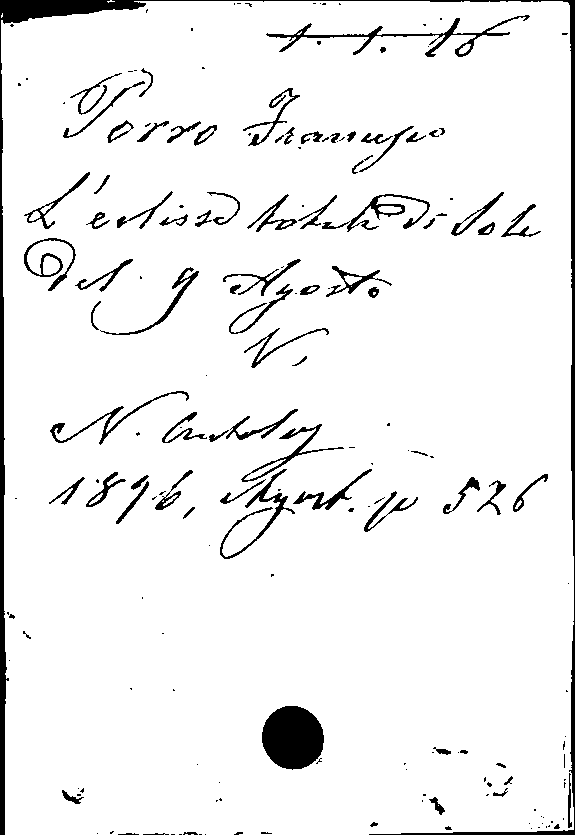 1. 1. 16
Porro Francesco
L'eclisse totale di Sole
del 9 Agosto
N.
N. Antolog
1896, Agost. p 526